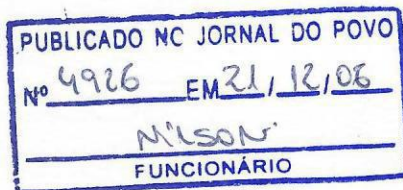 PUBLICADO NO JORNAL DO POVO
Nº 4926 EM 21 / 12 / 06
Nilson
FUNCIONÁRIO